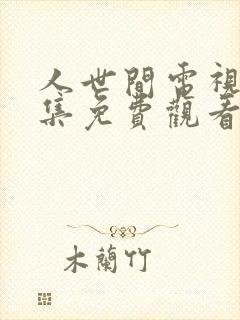 人世間電視
集免費觀看
木蘭竹